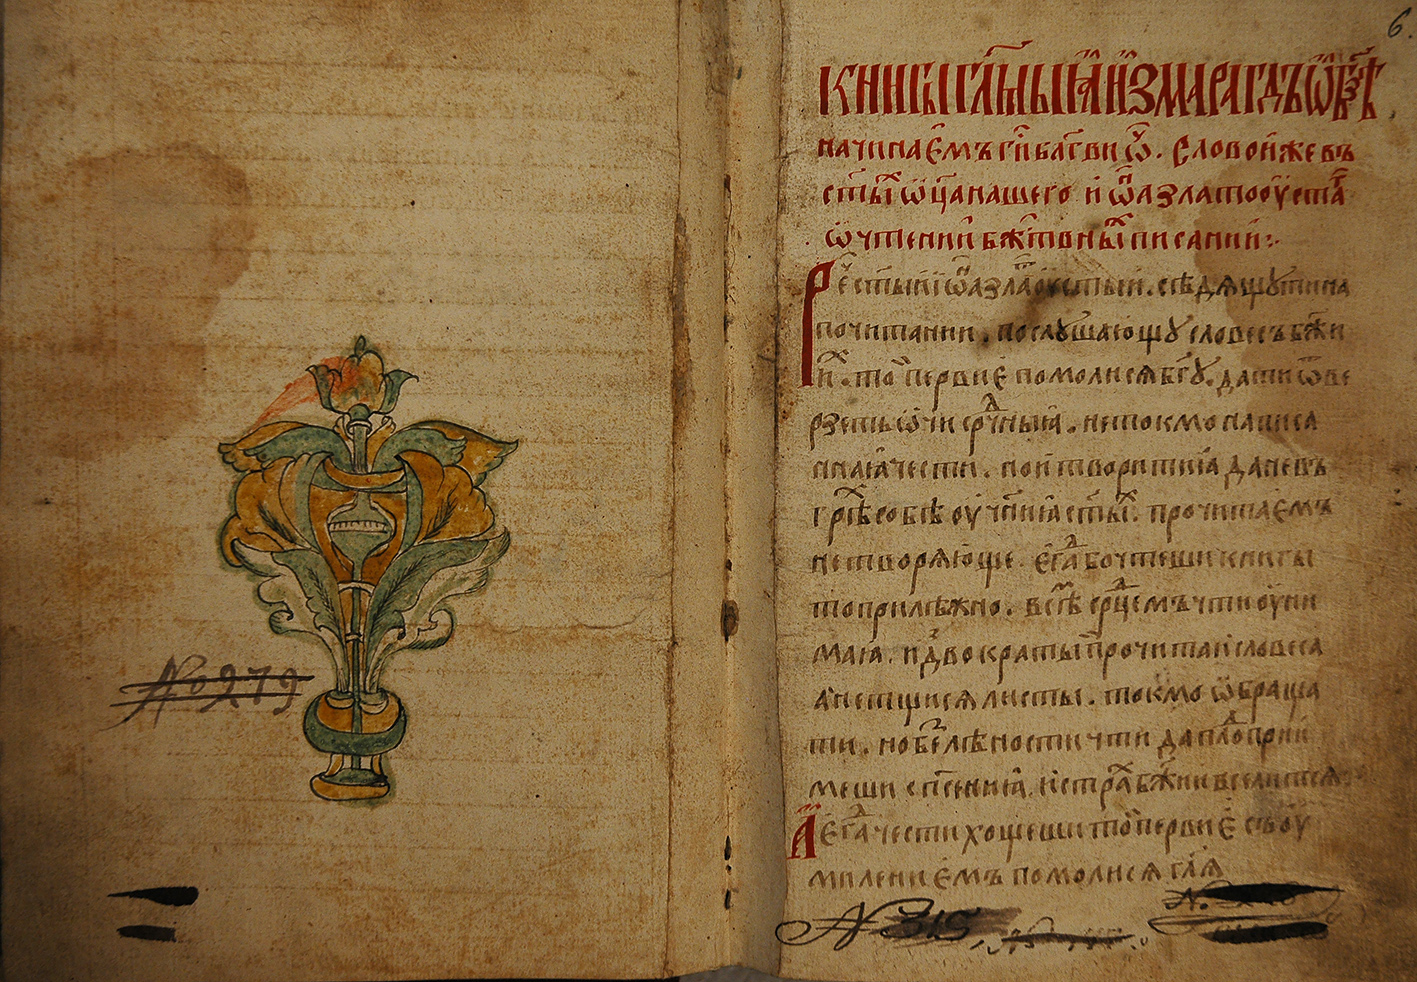 № 279
6.
КНИГЫ ГЛ҃МЫꙖ ИЗМАРАГДЪ Ѿ
начинаемъ ги҃ блгⷭ҇ви ѿч҃. Слово иже въ
ст҃ыⷯ ѿца нашего иѡⷩ҇а златоѹстаⷢ҇
ѡ чтенїи бжⷭ҇твныⷯ писанїи:·
Реⷱ҇ ст҃ый іѡⷩ҇а злаⷮоѹстый. сѣдящу ти на
почитании. послушающу словесъ бж҃и
иⷯ. тоⷨ первиє помолися бг҃у. да ти ѿве
рзетъ ѡчи срⷣчныꙗ. не токмо написа
ннаꙗ чести. но и творити ꙗ да не въ
грѣⷯ собѣ оученїꙗ ст҃ыⷯ. прочитаемъ
не творяюще. егⷣа бо чтеши книгы
то прилѣжно. всѣⷨ срⷣцемъ чти оуни
маꙗ. и двократы прочитаи словеса
а не тщися листы. токмо ѡбраща
ти. но беⷥ лѣности чти да плоⷣ прїи
меши спⷭ҇енїꙗ. и страⷯ бж҃ии вселится
А егⷣа чести хощеши тоⷨ первиє съ оу
милениемъ помолися гл҃я
№ 315